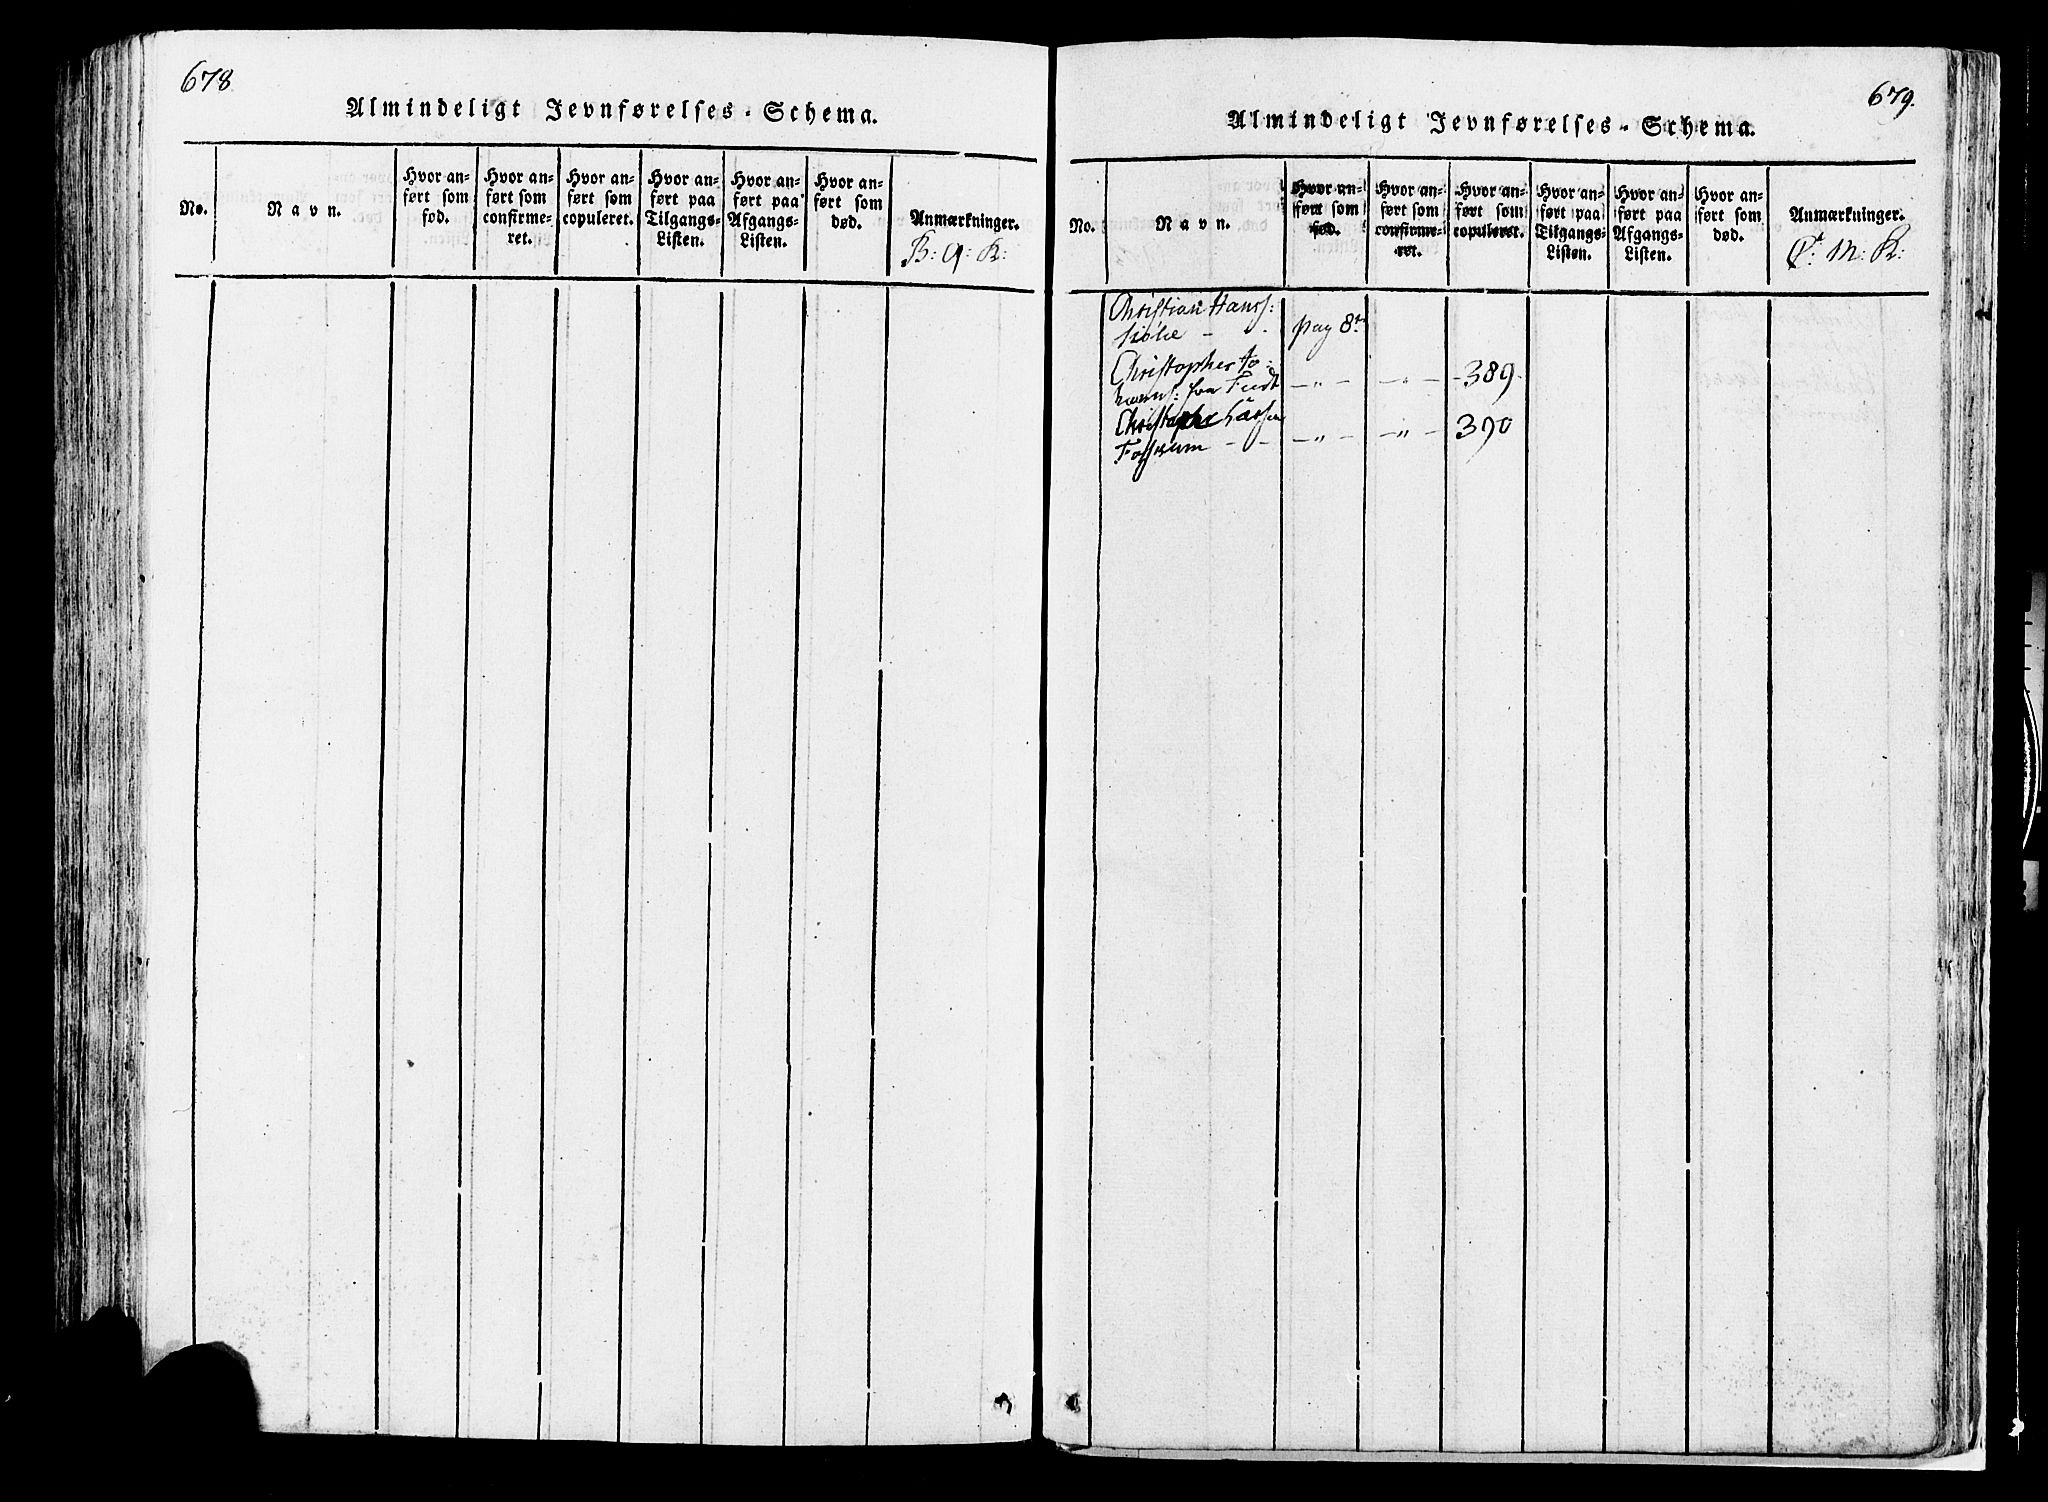 678
Almindeligt Jevnførelses-Schema.
No.
Navn.
Hvor an-
ført som
fød.
Hvor an-
ført som
confirme-
ret.
Hvor an-
ført som
copuleret.
Hvor an-
ført paa
Tilgangs-
Listen.
Hvor an-
ført paa
Afgangs-
Listen.
Hvor an-
ført som
død.
Anmærkninger.
B: Q: K:
679.
Almindeligt Jevnførelses-Schema.
No.
Navn.
Hvor an-
ført som
fød.
Hvor an-
ført som
confirme-
ret.
Hvor an-
ført som
copuleret.
Hvor an-
ført paa
Tilgangs-
Listen.
Hvor an-
ført paa
Afgangs-
Listen.
Hvor an-
ført som
død.
Anmærkninger.
M: K:
Christian Hanss:
pag 8
Christopher Jo-
fra - " - - " - - 389.
Christopher Larsen
Fossum - - - " - - " - 390